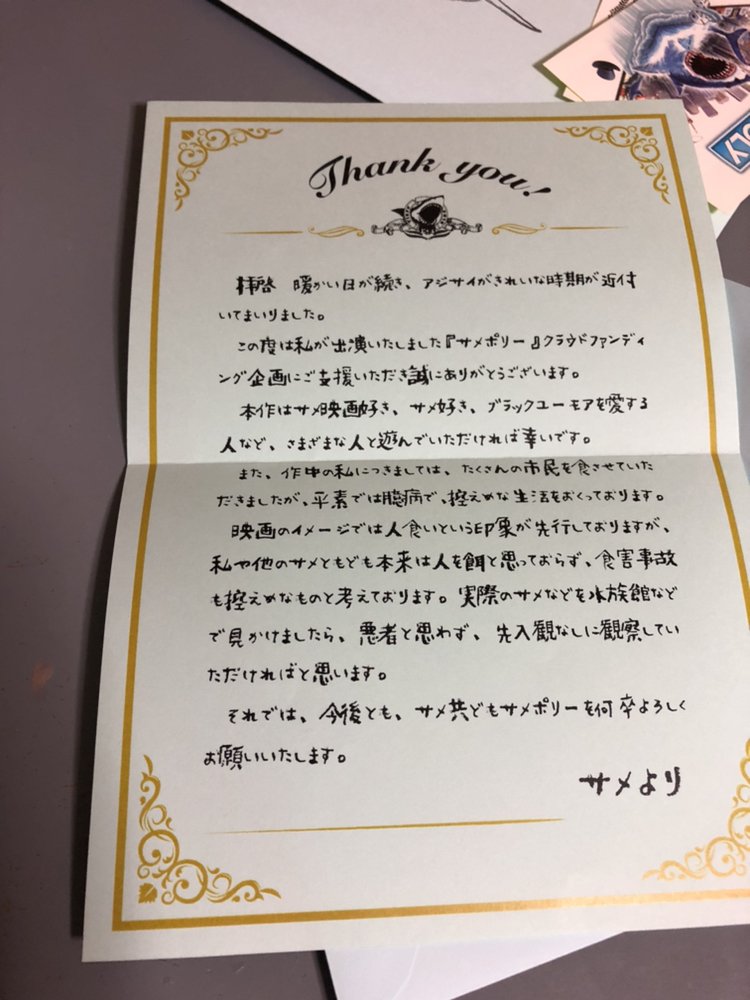 Thank you!
拝啓 暖かい日が続き、アジサイがきれいな時期が近付
いてまいりました。
この度は私が出演いたしました『サメポリー』クラウドファンディ
ング企画にご支援いただき誠にありがとうございます。
本作はサメ映画好き、サメ好き、ブラックユーモアを愛する
人など、さまざまな人と遊んでいただければ幸いです。
また、作中の私につきましては、たくさんの市民を食させていた
だきましたが、平素では臆病で、控えめな生活をおくっております。
映画のイメージでは人食いという印象が先行しておりますが、
私や他のサメともども本来は人を餌と思っておらず、食害事故
も控えめなものと考えております。実際のサメなどを水族館など
で見かけましたら、悪者と思わず、先入観なしに観察してい
ただければと思います。
それでは、今後とも、サメ共どもサメポリーを何卒よろしく
お願いいたします。
サメより